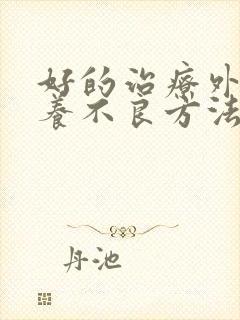 好的治疗外
养不良方法
丹池